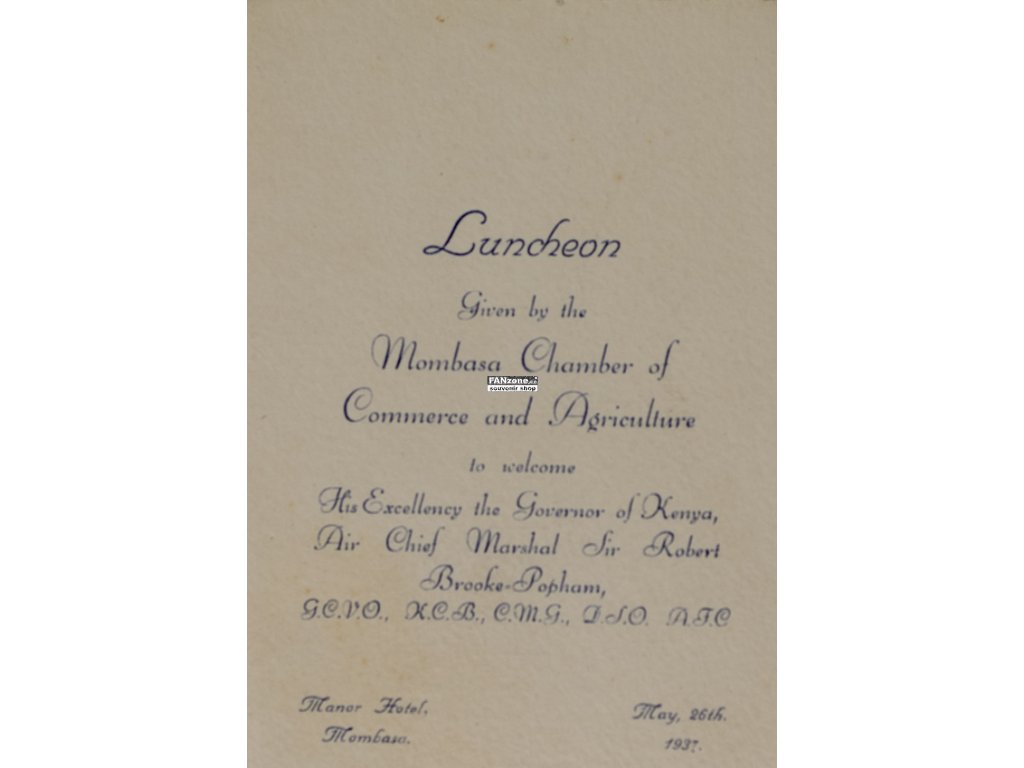 Luncheon
Given by the
Mombasa Chamber of
FANzone.cz
souvenir shop
Commerce and Agriculture
to welcome
His Excellency the Governor of Kenya,
Air Chief Marshal Sir Robert
Brooke-Popham,
G.C.V.O., K.C.B., C.M.G., D.S.O. A.F.C
Manor Hotel,
Mombasa.
May, 26th.
1937.